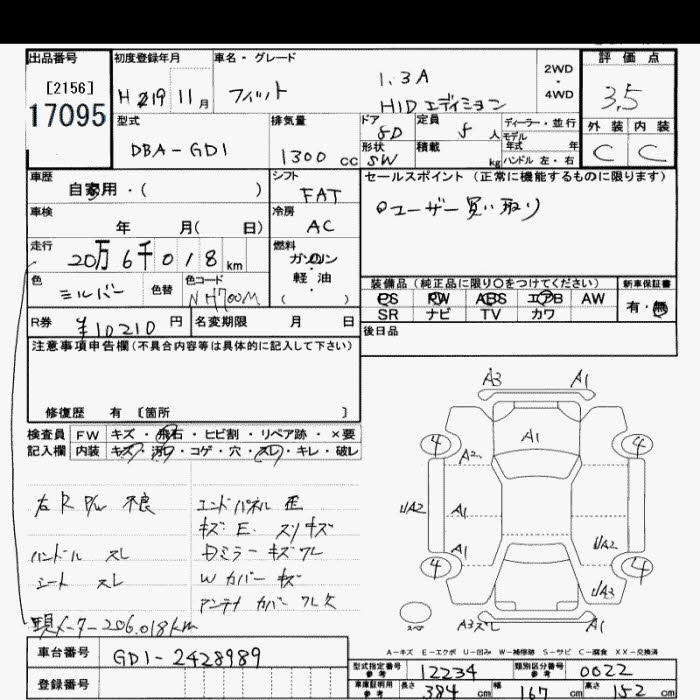 出品番号 初度登録年月 車名・グレード 評価点
[2156]
17095
H 19 11 月 フィット 1.3A
HIDエディション
2WD
・
4WD
3.5
型式 排気量 ドア 5D 定員 5 人 ディーラー・並行 外装 内装
DBA-GD1 1300 cc 形状 SW 積載 kg モデル年式 年
ハンドル 左・右
C C
車歴 シフト セールスポイント (正常に機能するものに限ります)
自家用・( ) FAT ユーザー買い取り
車検 冷房
年 月( 日) AC
走行 燃料
20万6千018 km ガソリン・軽油 ( )
色 色替 色コード 装備品 (純正品に限り〇をつけてください) 新車保証書
シルバー NH700M PS PW ABS エアB AW 有・無
SR ナビ TV カワ
R券 ¥10210 円 名変期限 月 日 後日品
注意事項申告欄 (不具合内容等は具体的に記入して下さい)
修復歴 有 [箇所 ]
検査員 FW キズ・飛石・ヒビ割・リペア跡・×要
記入欄 内装 キズ・汚れ・コゲ・穴・スレ・キレ・破レ
A3 A1
A1
4 4
A2
UA2 A1
A1 UA2
4 4
UA3
A3スレ A1
右R P/W 不良 エンドパネル 歪
キズ E. スリキズ
ハンドル スレ Dミラーキズフレ
シート スレ Wカバーキズ
アンテナカバーフレ欠
現メーター206.018km
A-キズ E-エクボ U-凹み W-補修跡 S-サビ C-腐食 XX-交換済
車台番号 GD1-2428989
登録番号
型式指定番号 参考 12234 類別区分番号 参考 0022
車庫証明用 参考 長さ 384 cm 幅 167 cm 高さ 152 cm